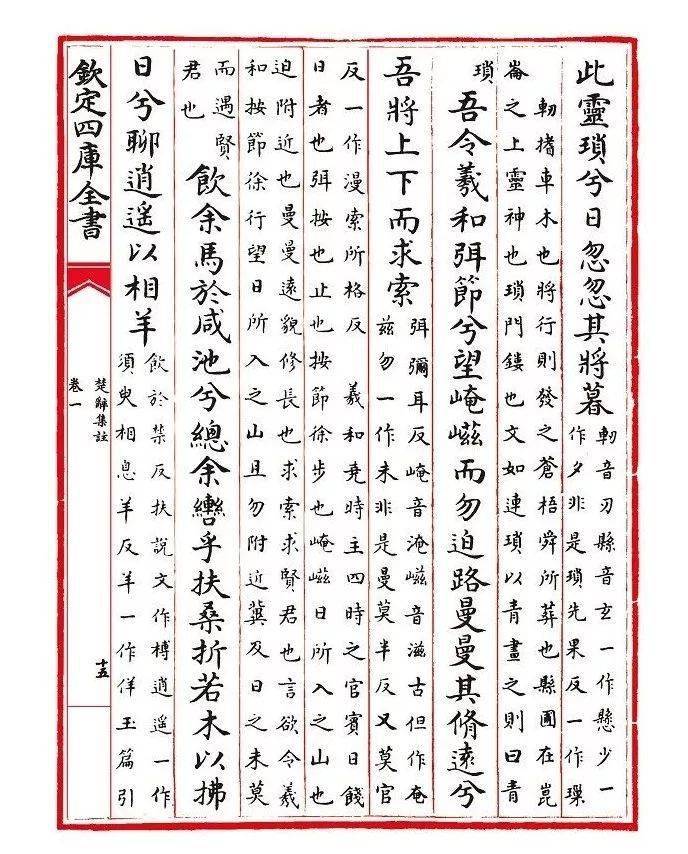 此靈瑣兮日忽忽其將暮
軔音刃縣音玄一作懸少一
作夕非是瑣先果反一作璅
軔搘車木也將行則發之蒼梧舜所葬也縣圃在崑
崙之上靈神也瑣門鏤也文如連瑣以青畫之則曰青
瑣
吾令羲和弭節兮望崦嵫而勿迫路曼曼其脩遠兮
吾將上下而求索
弭彌耳反崦音淹嵫音滋古但作奄
茲勿一作未非是曼莫半反又莫官
反一作漫索所格反
羲和堯時主四時之官賓日餞
日者也弭按也止也按節徐步也崦嵫日所入之山也
迫附近也曼曼遠貌修長也求索求賢君也言欲令羲
和按節徐行望日所入之山且勿附近冀及日之未莫
而遇賢
君也
飲余馬於咸池兮總余轡乎扶桑折若木以拂
日兮聊逍遥以相羊
飲於禁反扶說文作榑逍遥一作
須臾相息羊反羊一作佯玉篇引
欽定四庫全書
楚辭集註
卷一
十五